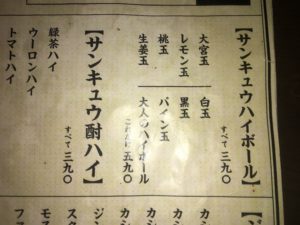 【サンキュウハイボール】
すべて三九〇
大宮玉
白玉
レモン玉
黒玉
桃玉
パイン玉
生姜玉
大人のハイボール
これだけ五九〇
【サンキュウ酎ハイ】
すべて三九〇
緑茶ハイ
ウーロンハイ
トマトハイ